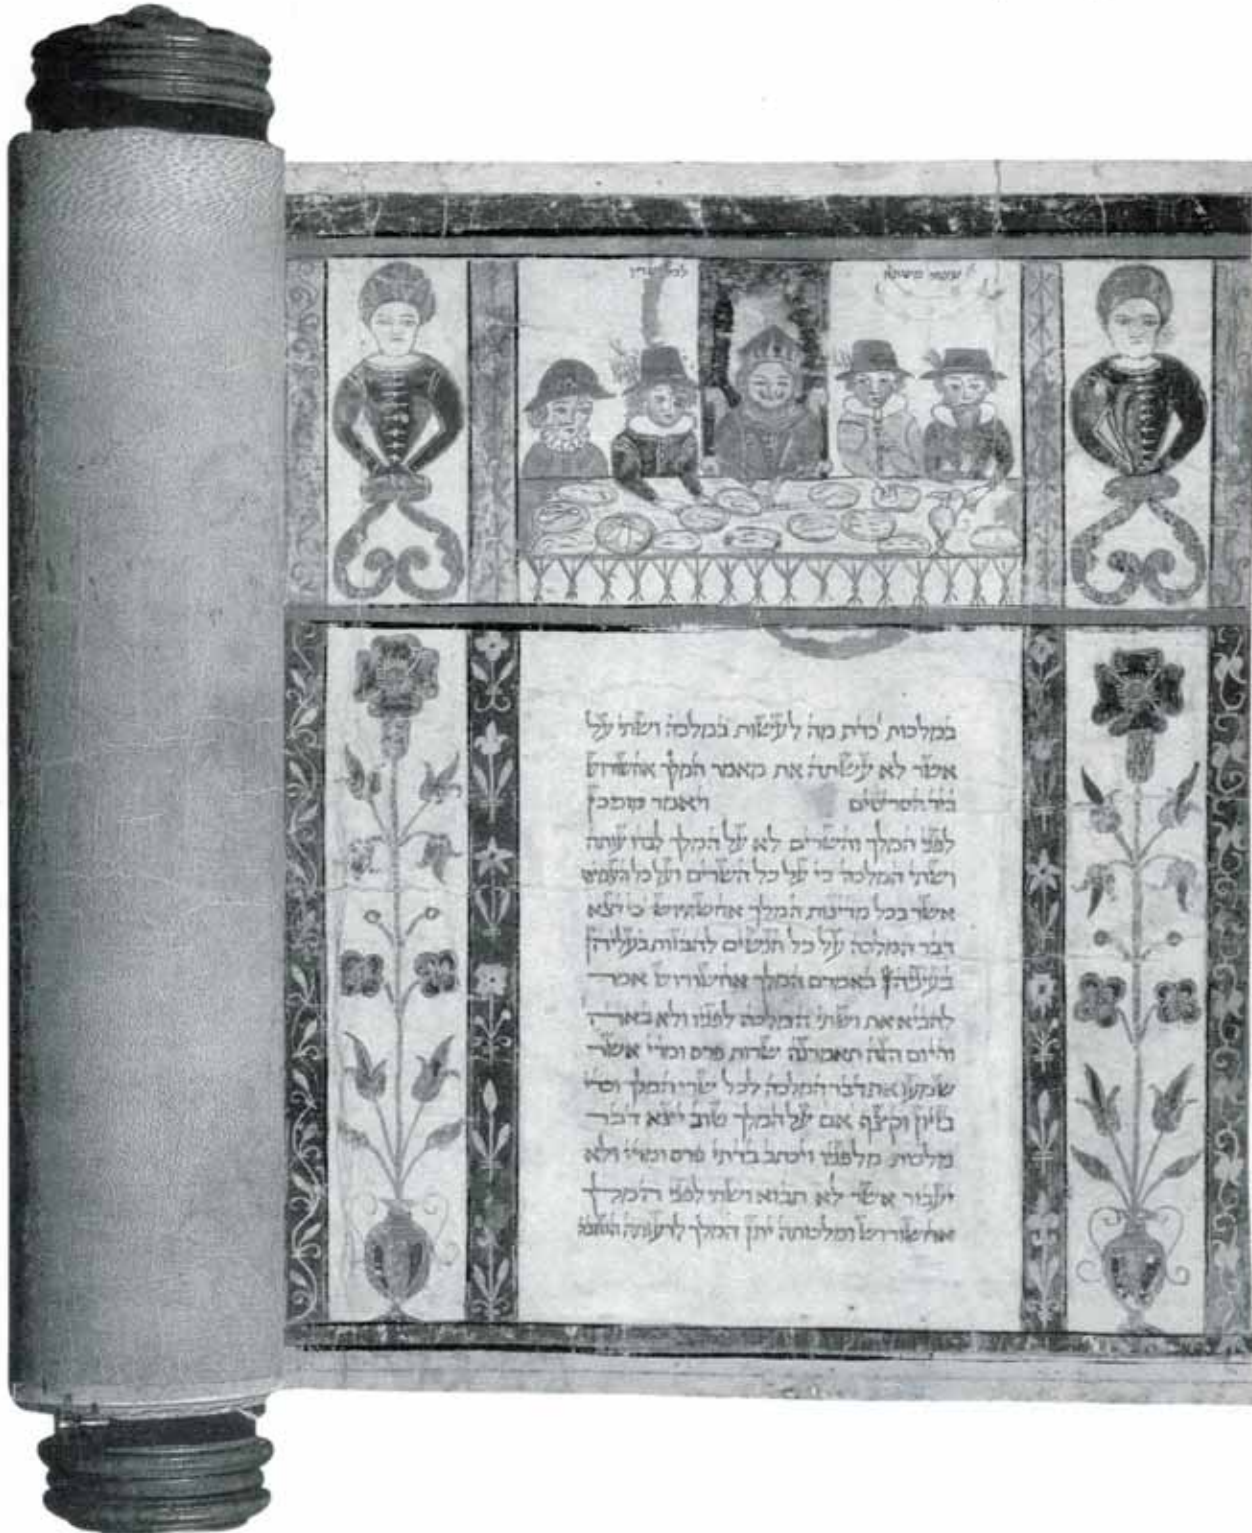 עשה משתה לכל שריו
במלכות כדת מה לעשות במלכה ושתי על
אשר לא עשתה את מאמר המלך אחשורוש
ביד הסריסים ויאמר מומכן
לפני המלך והשרים לא על המלך לבדו עותה
ושתי המלכה כי על כל השרים ועל כל העמים
אשר בכל מדינות המלך אחשורוש כי יצא
דבר המלכה על כל הנשים להבזות בעליהן
בעיניהן באמרם המלך אחשורוש אמר
להביא את ושתי המלכה לפניו ולא באה
והיום הזה תאמרנה שרות פרס ומדי אשר
שמעו את דבר המלכה לכל שרי המלך וכדי
בזיון וקצף אם על המלך טוב יצא דבר
מלכות מלפניו ויכתב בדתי פרס ומדי ולא
יעבור אשר לא תבוא ושתי לפני המלך
אחשורוש ומלכותה יתן המלך לרעותה הטובה